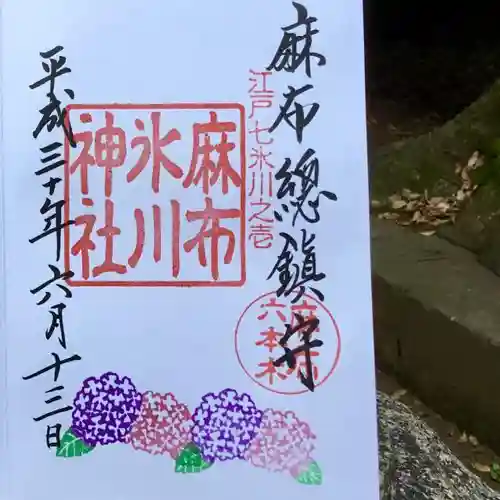 麻布總鎮守
江戸七氷川之壱
麻布
氷川
神社
麻布
六本木
平成三十年六月十三日